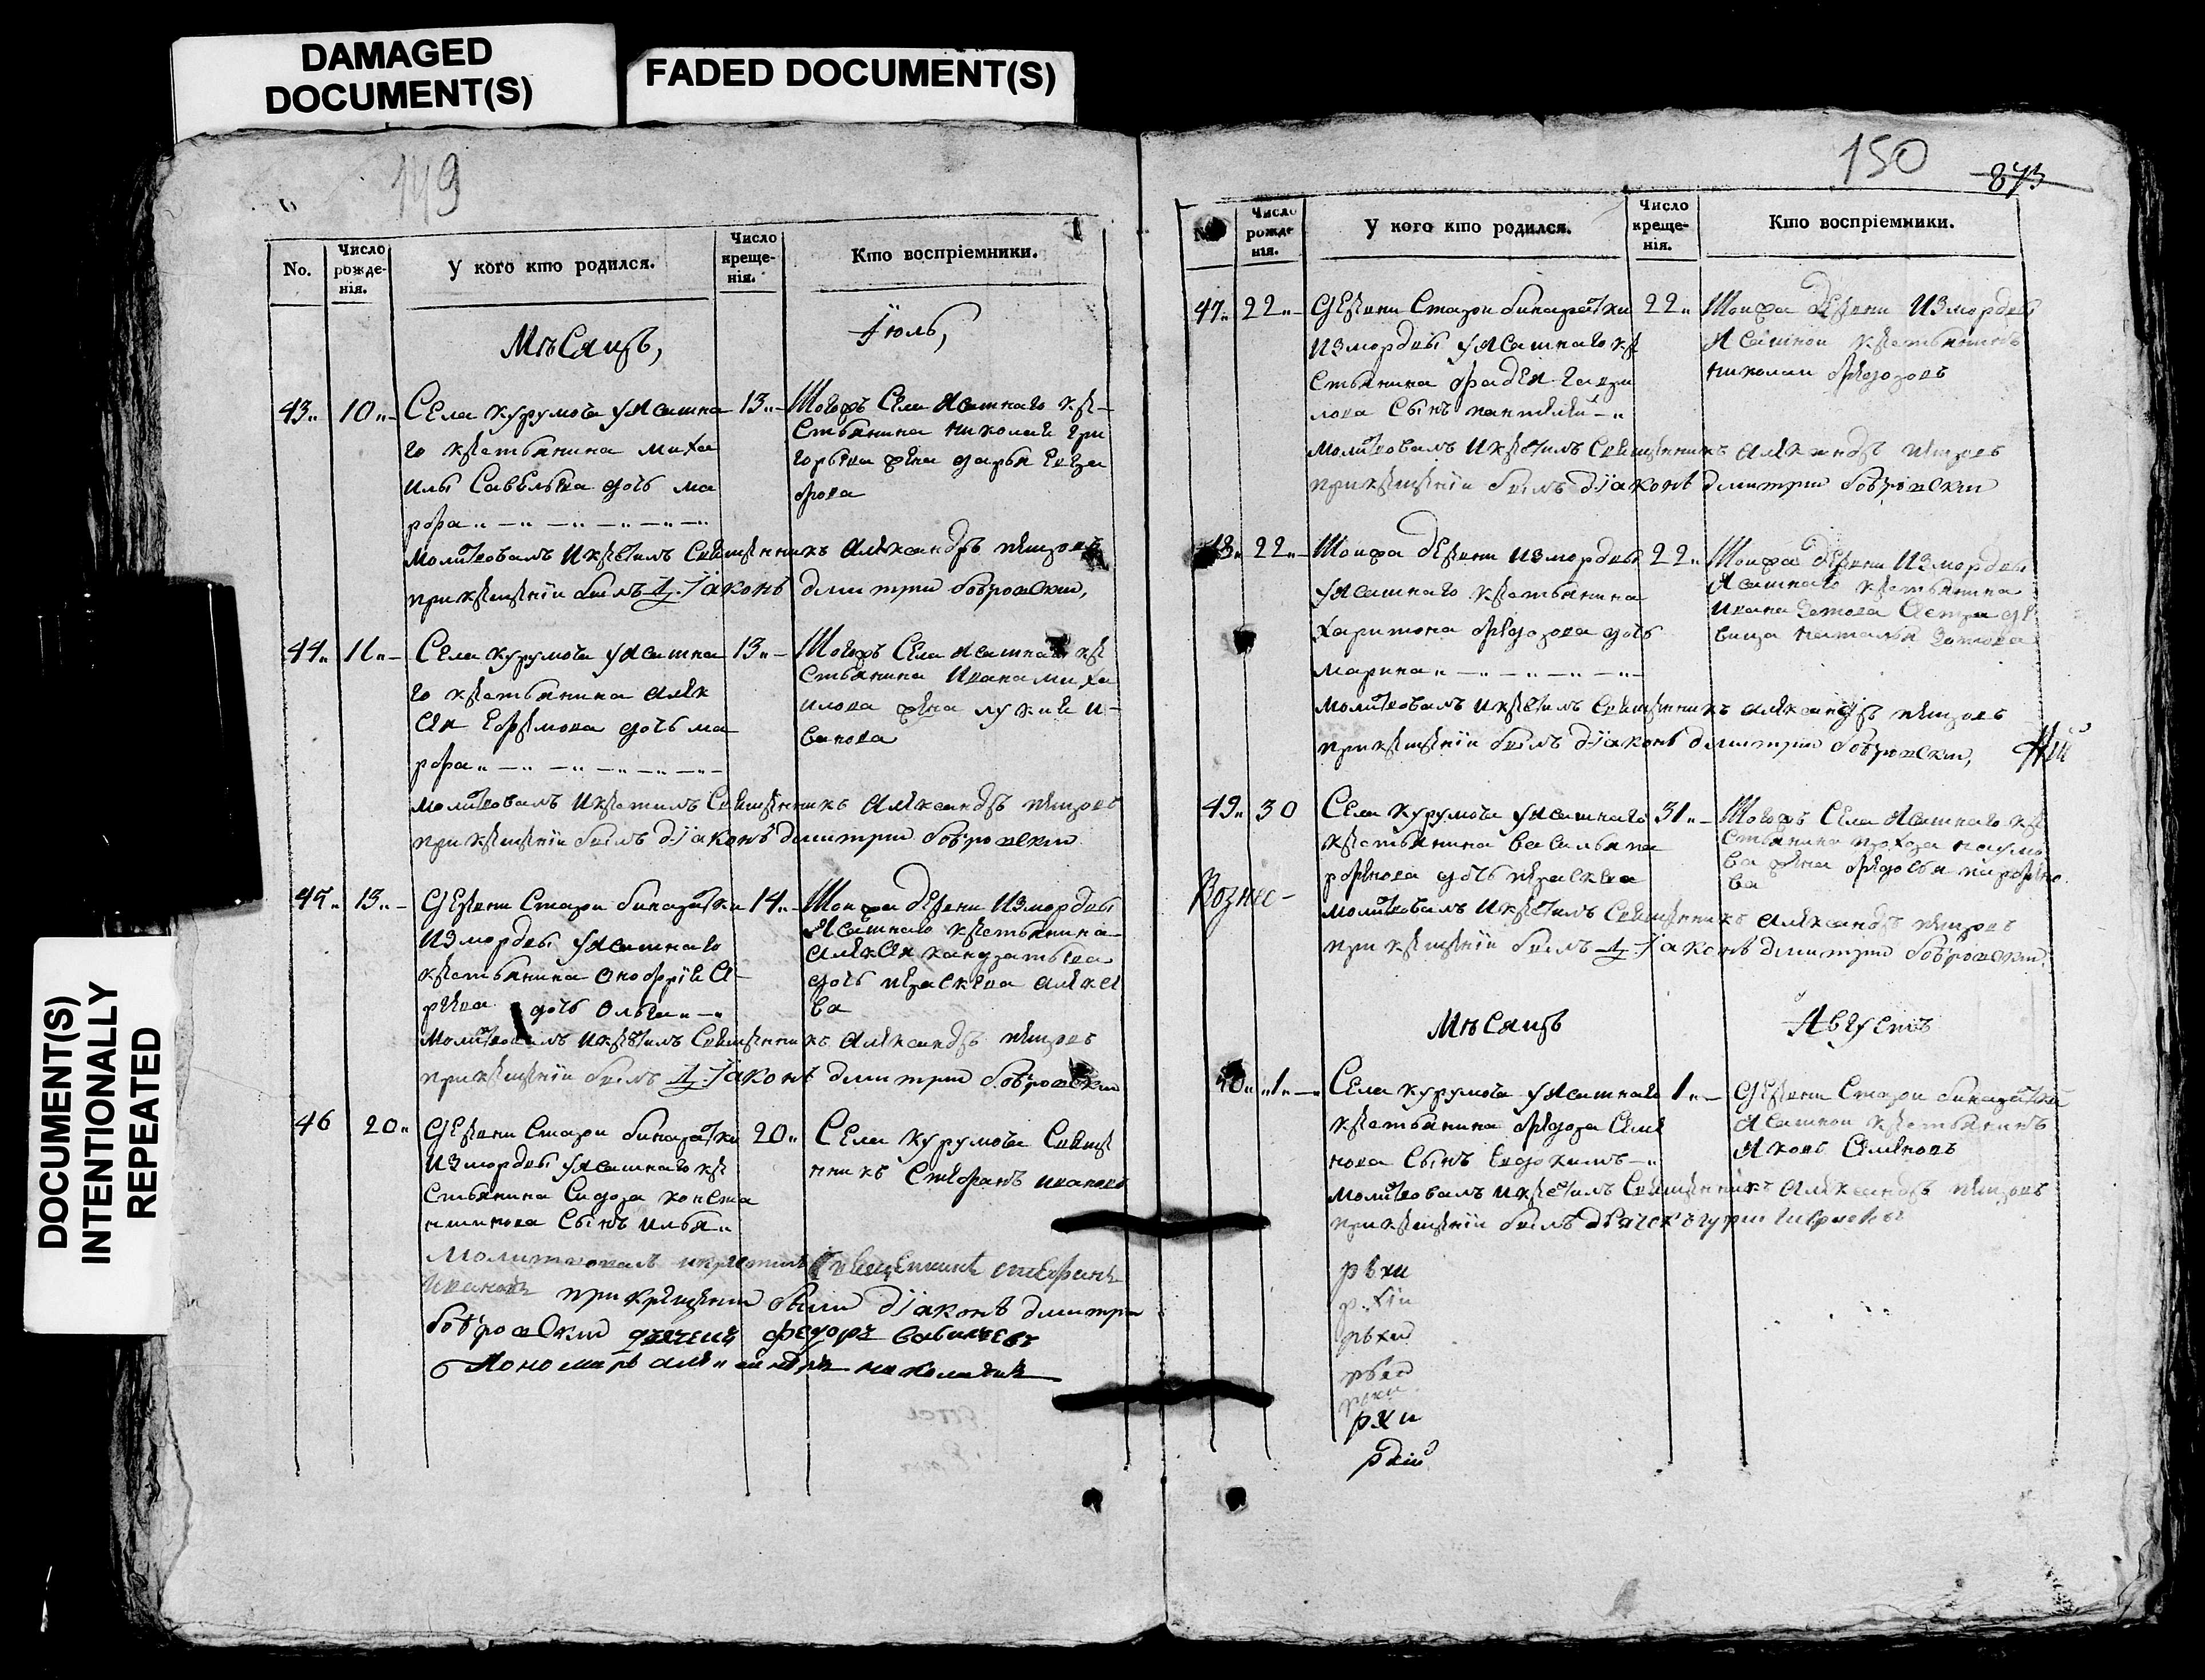 DAMAGED
DOCUMENT(S)
FADED DOCUMENT(S)
DOCUMENT(S)
INTENTIONALLY
REPEATED
149
No.
Число рожденія.
У кого кто родился.
Число крещенія.
Кто воспріемники.
Мѣсяцъ,
Іюль,
43
10
Села курумоча у ясашна
го крестьянина миха
илы савельева дочь ма
рфа
13
Тогожъ села ясашнаго кре
стьянина николая гри
горьева жена дарья
молитвовалъ и крестилъ священникъ александръ петровъ
при крещеніи былъ діаконъ дмитри бобровски,
44
11
Села курумоча у ясашна
го крестьянина алек
сея ефремова дочь ма
рфа
13
Тогожъ села ясашнаго кре
стьянина ивана миха
илова жена лукия и
ванова
молитвовалъ и крестилъ священникъ александръ петровъ
при крещеніи былъ діаконъ дмитри бобровски
45
13
деревни стари бинаратки
из мордвы у ясашнаго
крестьянина онофрія
дочь ольга
14
Тоижа деревни из мордвы
ясашнаго крестьянина
алексея
дочь параскева алексе
ва
молитвовалъ и крестилъ священникъ александръ петровъ
при крещеніи былъ діаконъ дмитри бобровски
46
20
деревни стари бинаратки
из мордвы у ясашнаго кре
стьянина сидора конста
нтинова сынъ илья
20
Села курумоча свяще
нникъ стефанъ ивановъ
молитвовалъ и крестилъ священникъ стефанъ
ивановъ при крещении были діаконъ дмитри
бобровски дьячекъ федоръ
пономарь александръ николаевъ
150
873
No.
Число рожденія.
У кого кто родился.
Число крещенія.
Кто воспріемники.
47
22
деревни стари бинаратки
из мордвы у ясашнаго кре
стьянина фадея гаври
лова сынъ пантелей
22
Тоижа деревни из мордвы
ясашной крестьянинъ
николаи федоровъ
молитвовалъ и крестилъ священникъ александръ петровъ
при крещеніи былъ діаконъ дмитри бобровски
48
22
Тоижа деревни из мордвы
у ясашнаго крестьянина
харитона федорова дочь
марина
22
Тоижа деревни из мордвы
ясашнаго крестьянина
ивана зотова сестра де
вица наталья зотова
молитвовалъ и крестилъ священникъ александръ петровъ
при крещеніи былъ діаконъ дмитри бобровски,
49
30
Села курумоча у ясашнаго
крестьянина василья па
рфенова дочь параскева
31
Тогожъ села ясашнаго кре
стьянина прохора наумо
ва жена федосья парфено
ва
молитвовалъ и крестилъ священникъ александръ петровъ
при крещеніи былъ діаконъ дмитри бобровски
Мѣсяцъ
Августъ
50
1
Села курумоча у ясашнаго
крестьянина федора семе
нова сынъ евдокимъ
1
деревни стари бинаратки
ясашной крестьянинъ
яковъ семеновъ
молитвовалъ и крестилъ священникъ александръ петровъ
при крещеніи былъ дьячекъ